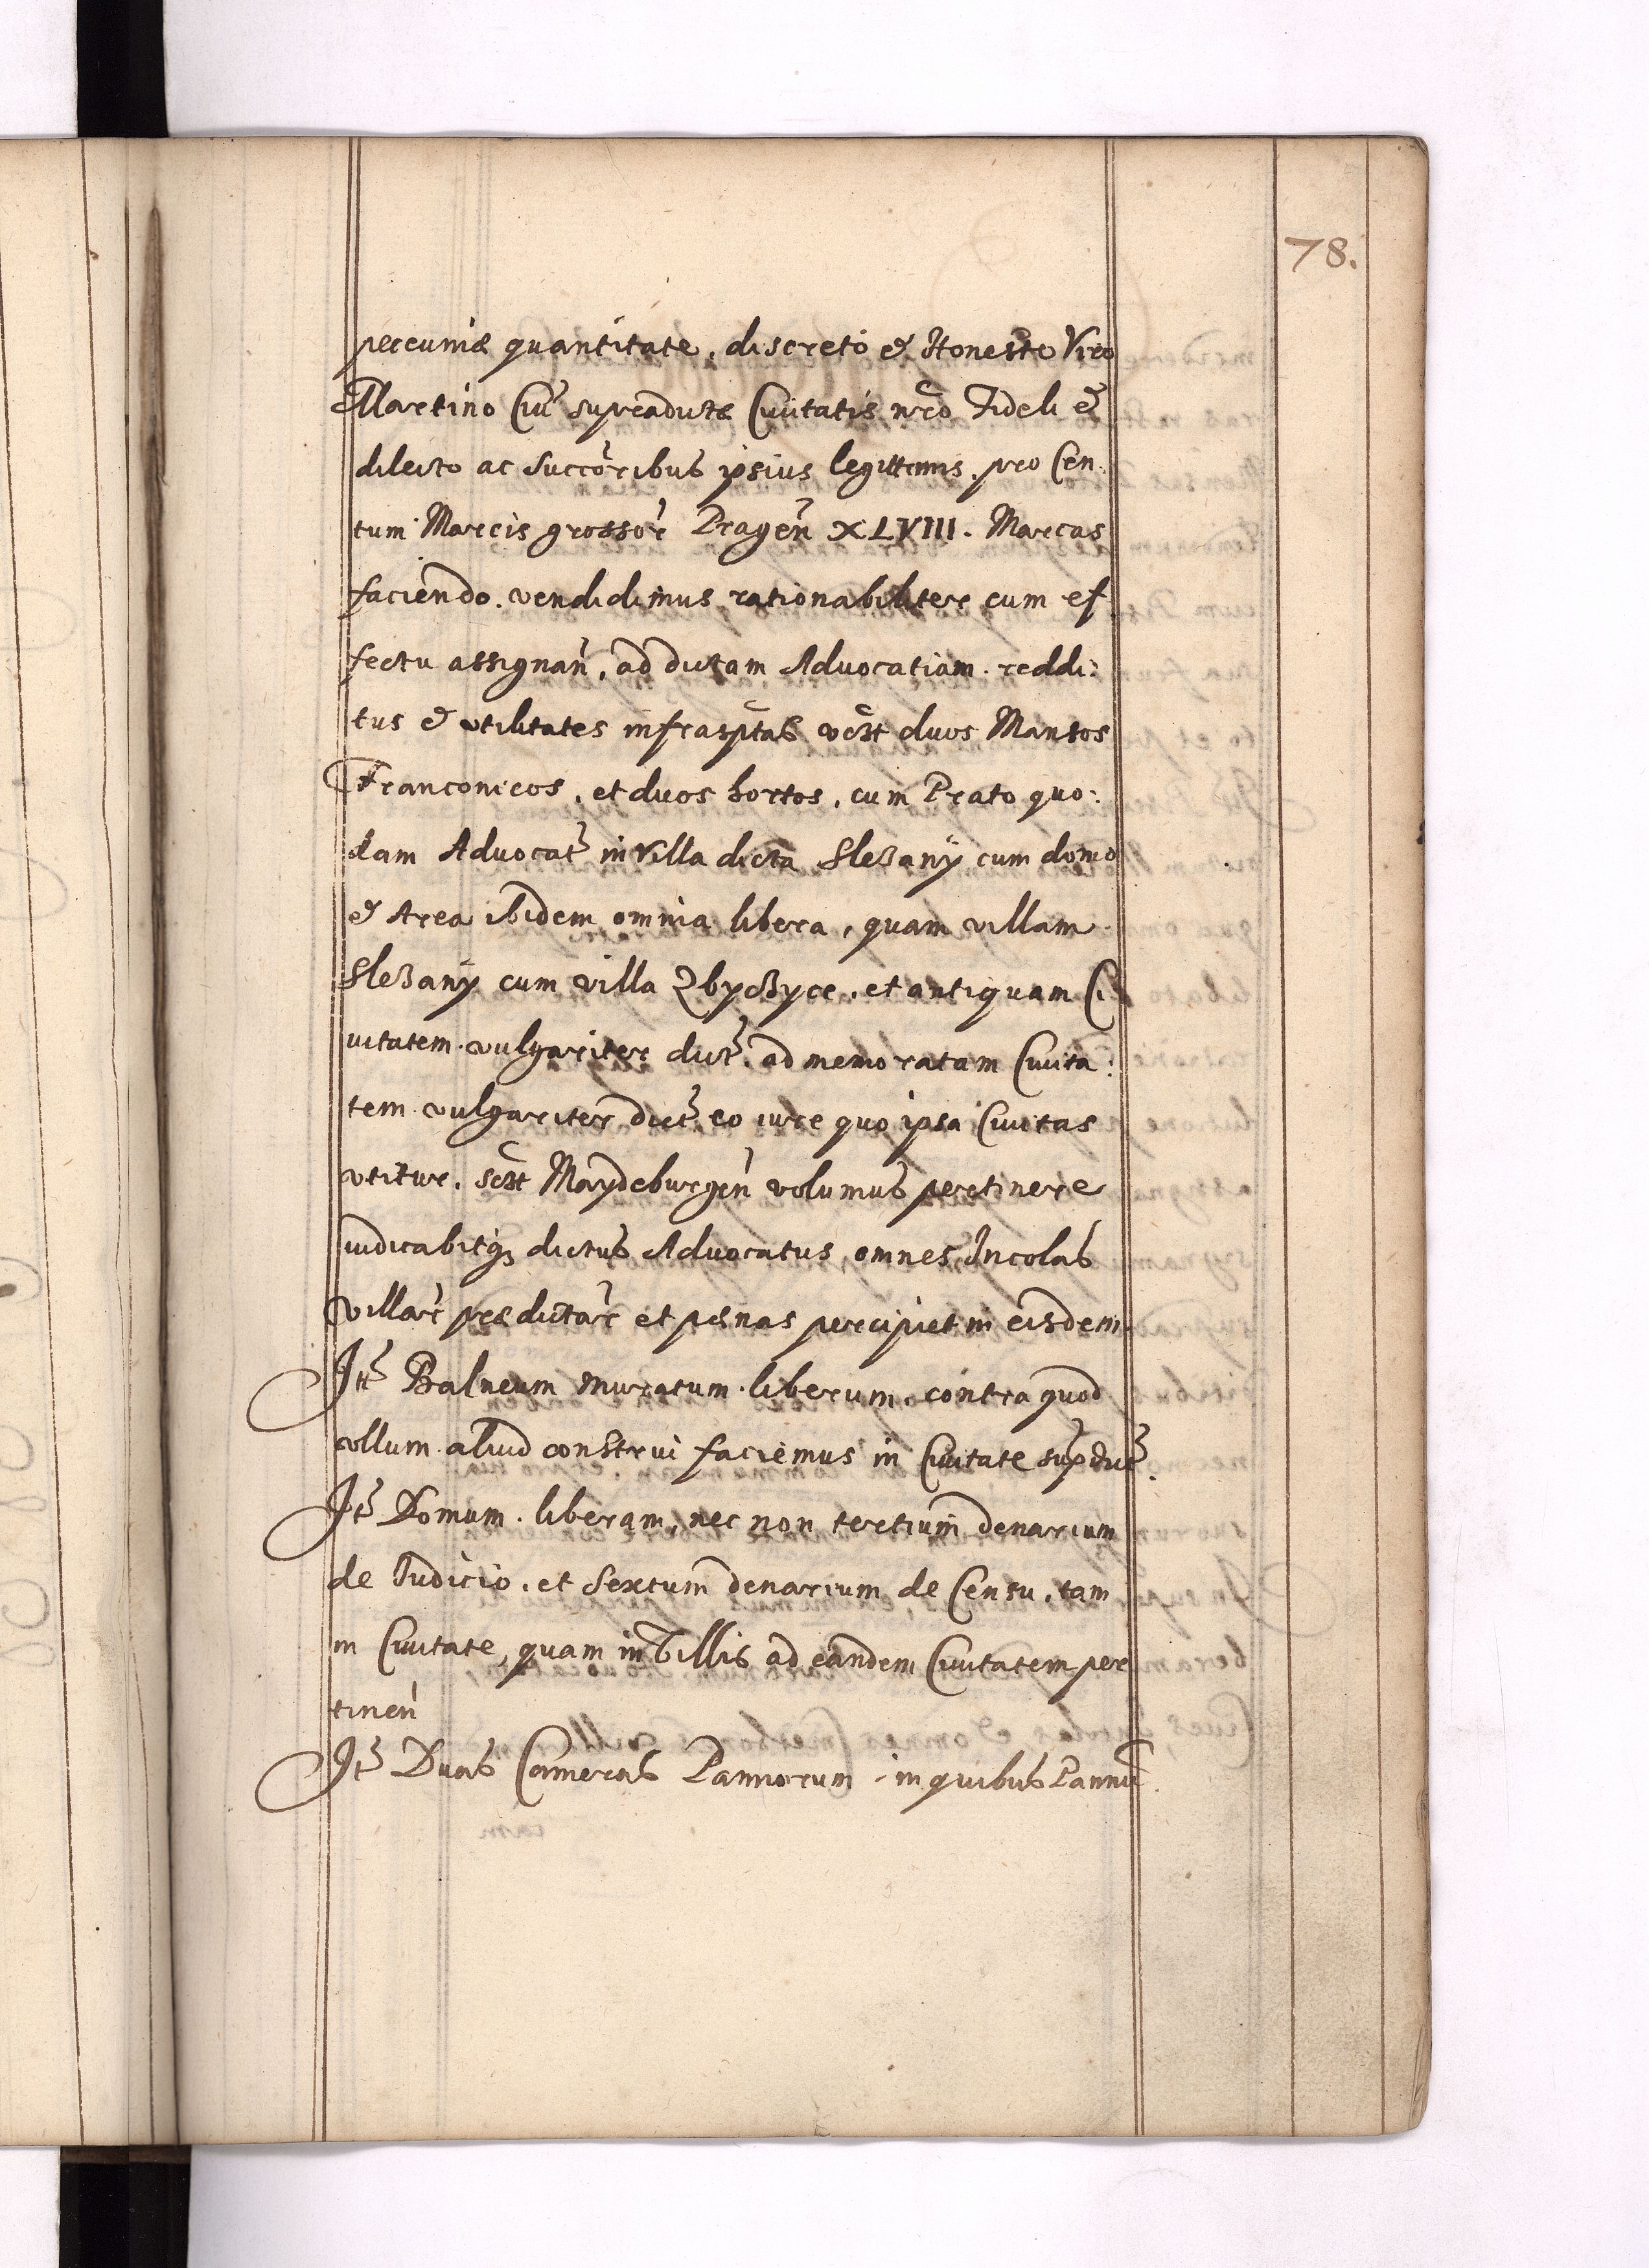 78.
peccuniæ quantitate, discreto & Honesto Viro
Martino Civi supradictæ Civitatis nr̃o Fideli &
dilecto ac Succõribus ipsius legittimis, pro Cen:
tum Marcis grossor̃ Pragen̄ XLVIII. Marcas
faciendo. vendidimus rationabiliter cum ef
fectu assignan̄, ad dictam Advocatiam. reddi:
tus & vtilitates infrasp̃tas vc̃lt duos Mansos
Franconicos, et duos hortos, cum Prato quo:
dam Advocat̃ in Villa dicta Sleßany cum domo
& Area ibidem omnia libera, quam villam
Sleßany cum villa Zbyßyce, et antiquam Ci
uitatem vulgariter dict̃, ad memoratam Ciuita:
tem vulgariter dict̃ eo iure quo ipsa Ciuitas
vtitur, sc̃lt Maydeburgen̄ volumus pertinere
iudicabitq₃ dictus Advocatus, omnes Incolas
villar̃ prædictar̃ et pænas percipiet in eisdem
Itt̃ Balneum muratum liberum, contra quod
vllum aliud construi faciemus in Civitate sup̃dict̃.
It̃ Domum liberam, nec non tertium denarium
de Iudicio, et Sextum denarium de Censu, tam
in Ciuitate, quam in Villis ad eandem Ciuitatem per
tinen̄
It̃ Duas Cameras Pannorum in quibus Panni